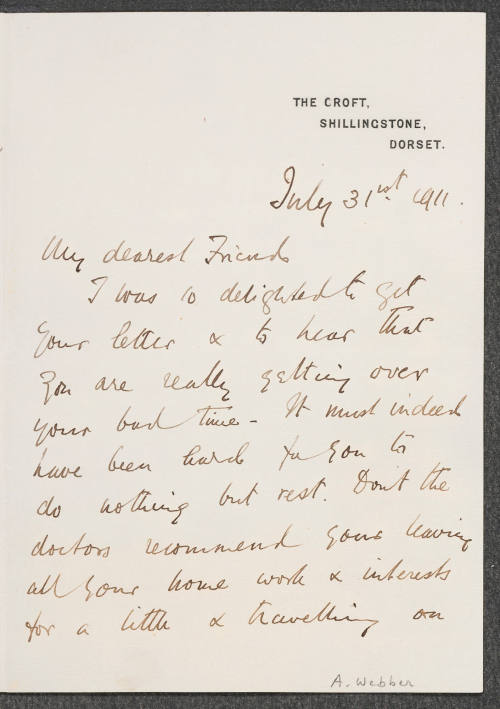 THE CROFT,
SHILLINGSTONE,
DORSET.
July 31st 1911.
My dearest Friend
I was so delighted to get
your letter & to hear that
you are really getting over
your bad time - It must indeed
have been hard for you to
do nothing but rest. Don't the
doctors recommend your leaving
all your home work & interests
for a little & travelling on
A. Webber